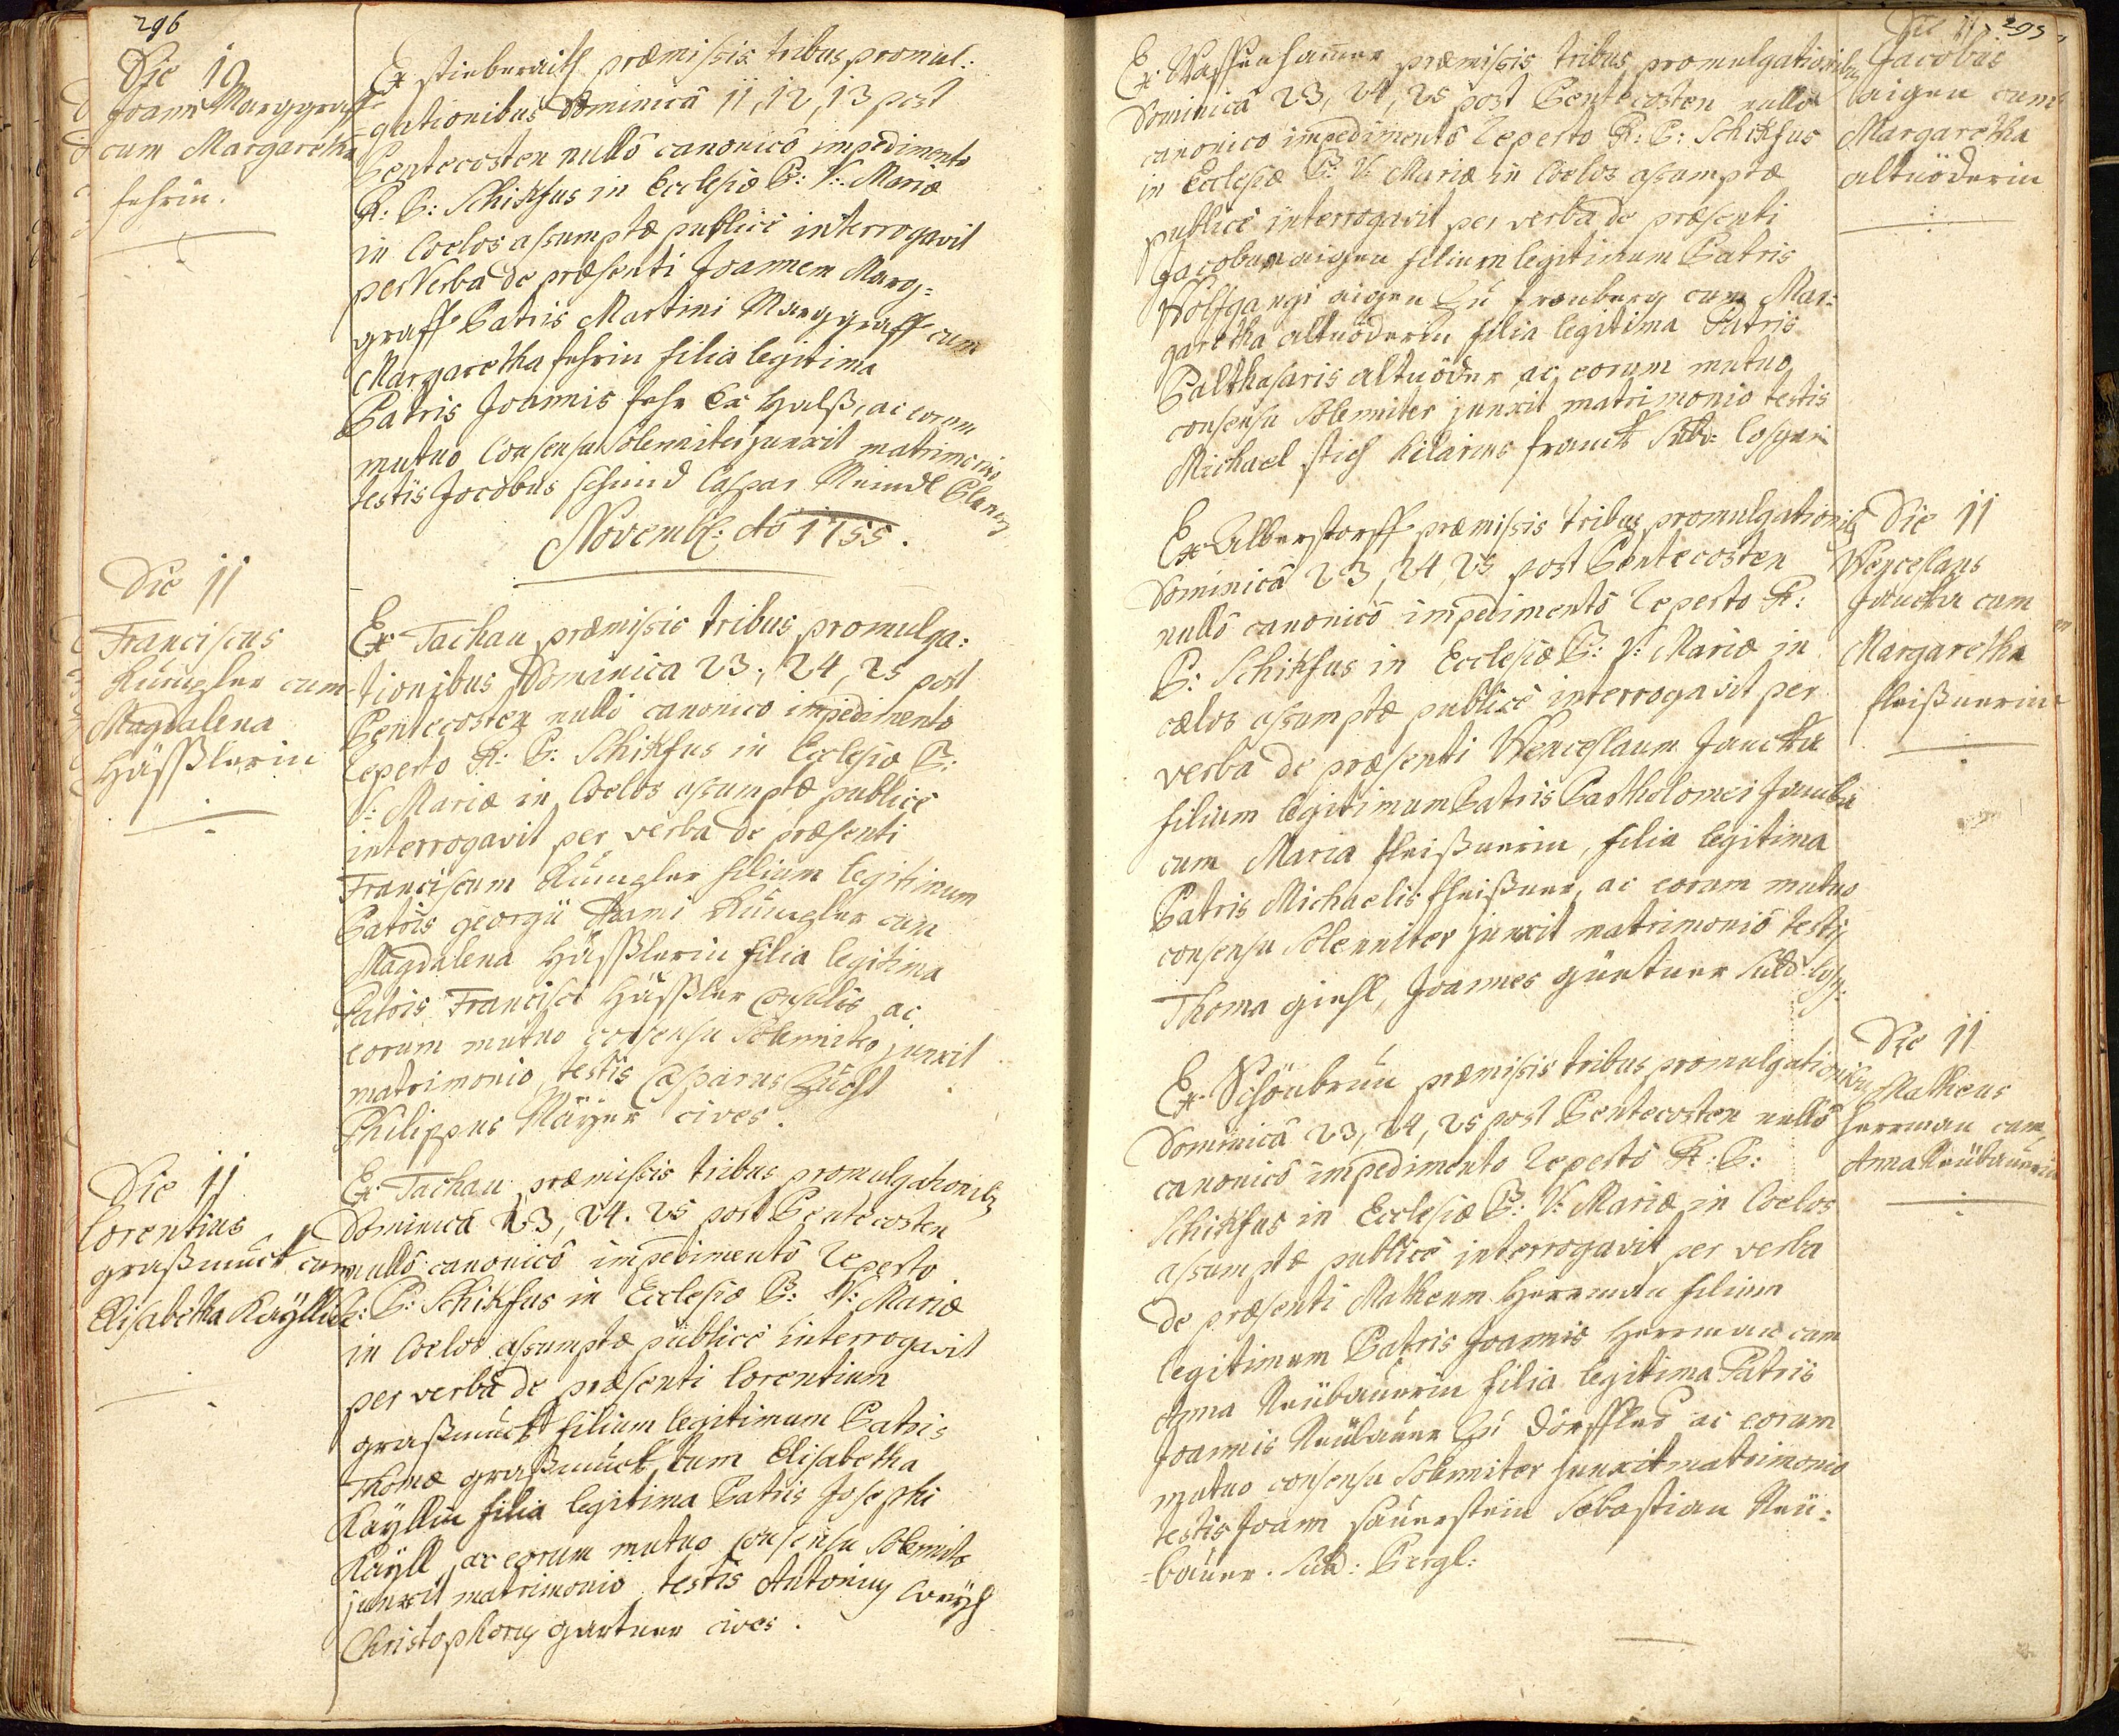 296
Die 19
Joann Marggraff
cum Margaretha
fehrin.
Ex stieberaith præmissis tribus promul:
gationibus Dominicâ 11, 12, 13 post
Pentecosten nullô canonicô impedimento
R: P: Schikfus in Ecclesiæ B: V: Mariæ
in Coelos assumptæ publicè interrogavit
per Verba de præsenti Joannem Marg=
graff Patris Martini Marggraff cum
Margaretha fehrin filia legitima
Patris Joannis fehr Ex Halß, ac eorum
mutuo Consensu Solenniter junxit matrimonio
testis Jocobus schmid Caspar Meindl Planens
Novemb: Aõ 1755.
Die 11
Franciscus
Küngler cum
Magdalena
Häßlerin
Ex Tachau præmissis tribus promulga:
tionibus Dominica 23, 24, 25 post
Pentecosten nullô canonico impedimento
reperto R: P: Schikfus in Ecclesiæ B:
V: Mariæ in Coelos assumptæ publicè
interrogavit per verba de præsenti
Franciscum Küngler filium legitimum
Patris georgii Küngler cum
Magdalena Häßlerin filia legitima
Patris Francisci Häßler Consulis ac
eorum mutuo consensu Solenniter junxit
matrimonio, testis Casparus Züchl
Philippus Mäÿer cives.
Die 11
Lorentius
graßmuck cum
Elisabetha Käÿllin
Ex Tachau præmissis tribus promulgationib9
Dominicâ 23, 24. 25 post Pentecosten
nullô canonicô impedimentô reperto
R: P: Schikfus in Ecclesiæ B: V: Mariæ
in Coelos assumptæ publicè interrogavit
per verba de præsenti Lorentium
graßmuck filium legitimum Patris
Thomæ graßmuck cum Elisabetha
Käÿllin filia legitima Patris Josephi
Käÿll, ac eorum mutuo consensu Solenniter
junxit matrimonio testis Antonius
Christophorus gartner cives.
Die 11 295
Jacobus
aigen cum
Margaretha
altnöderin
Ex præmissis tribus promulgationibus
Dominicâ 23, 24, 25 post Pentecosten nullô
canonico impedimentô reperto R: P: Schikfus
in Ecclesiæ B: V: Mariæ in Coelos assumptæ
publicè interrogavit per verba de præsenti
Jacobum aigen filium legitimum Patris
Wolfgangi aigen Zu fronberg cum Mar:
garetha altnöderin filia legitima Patris
Balthasaris altnöder ac eorum mutuo
consensu Solenniter junxit matrimonio testis
Michael stich hilarius franck Subd: losgnen
Ex Alberstorff præmissis tribus promulgationib9
Dominicâ 23, 24, 25 post Pentecosten
nullô canonicô impedimentô reperto R:
P: Schikfus in Ecclesiæ B: V: Mariæ in
cælos assumptæ publicè interrogavit per
verba de præsenti Wenceslaum Jancka
filium legitimum Patris Bartholomei Jancka
cum Maria fleißnerin, filia legitima
Patris Michaelis fleißner, ac eorum mutuo
consensu Solenniter junxit matrimoniô testis
Thoma giehl, Joannes güntner Subd: losg:
Die 11
Wenceslaus
Jancka cum
Margaretha
fleißnerin
Ex Schönbrun præmissis tribus promulgationibus
Dominicâ 23, 24, 25 post Pentecosten nullô
canonicô impedimento repertô R: P:
Schikfus in Ecclesiæ B: V: Mariæ in Coelos
assumptæ publicè interrogavit per verba
de præsenti Matheum Herrman filium
legitimum Patris Joannis Herrman cum
Anna Neübauerin filia legitima Patris
Joannis Neübauer Zu Dörffles ac eorum
mutuo consensu Solenniter junxit matrimonio
testis Joann sauerstein Sebastian Neü:
=bauer. Subd: Bergl:
Die 11
Matheus
herrman cum
Anna Neübauerin